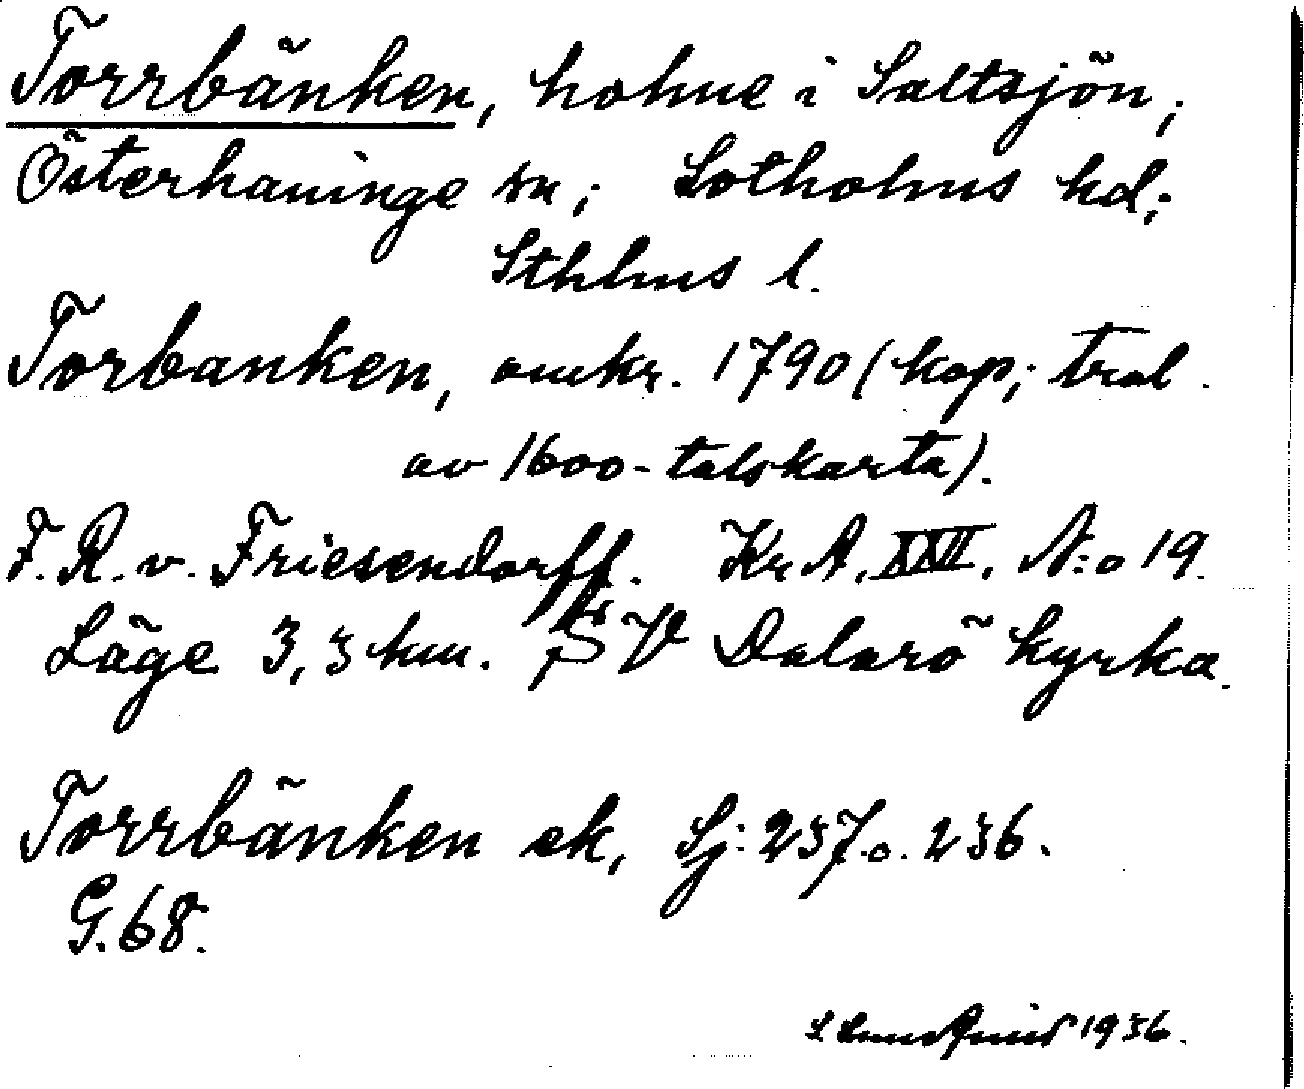 Torrbänken, holme i Saltsjön;
Österhaninge sn; Sotholms hd;
Sthlms l.
Torbanken, omkr. 1790 (kop; trol.
av 1600-talskarta).
F. R. v. Friesendorff. Kr. A. XXII. N:o 19.
Läge 3,3 km. SV Dalarö kyrka.
Torrbänken ek, Sj: 237. o. 236.
G. 68.
1936.